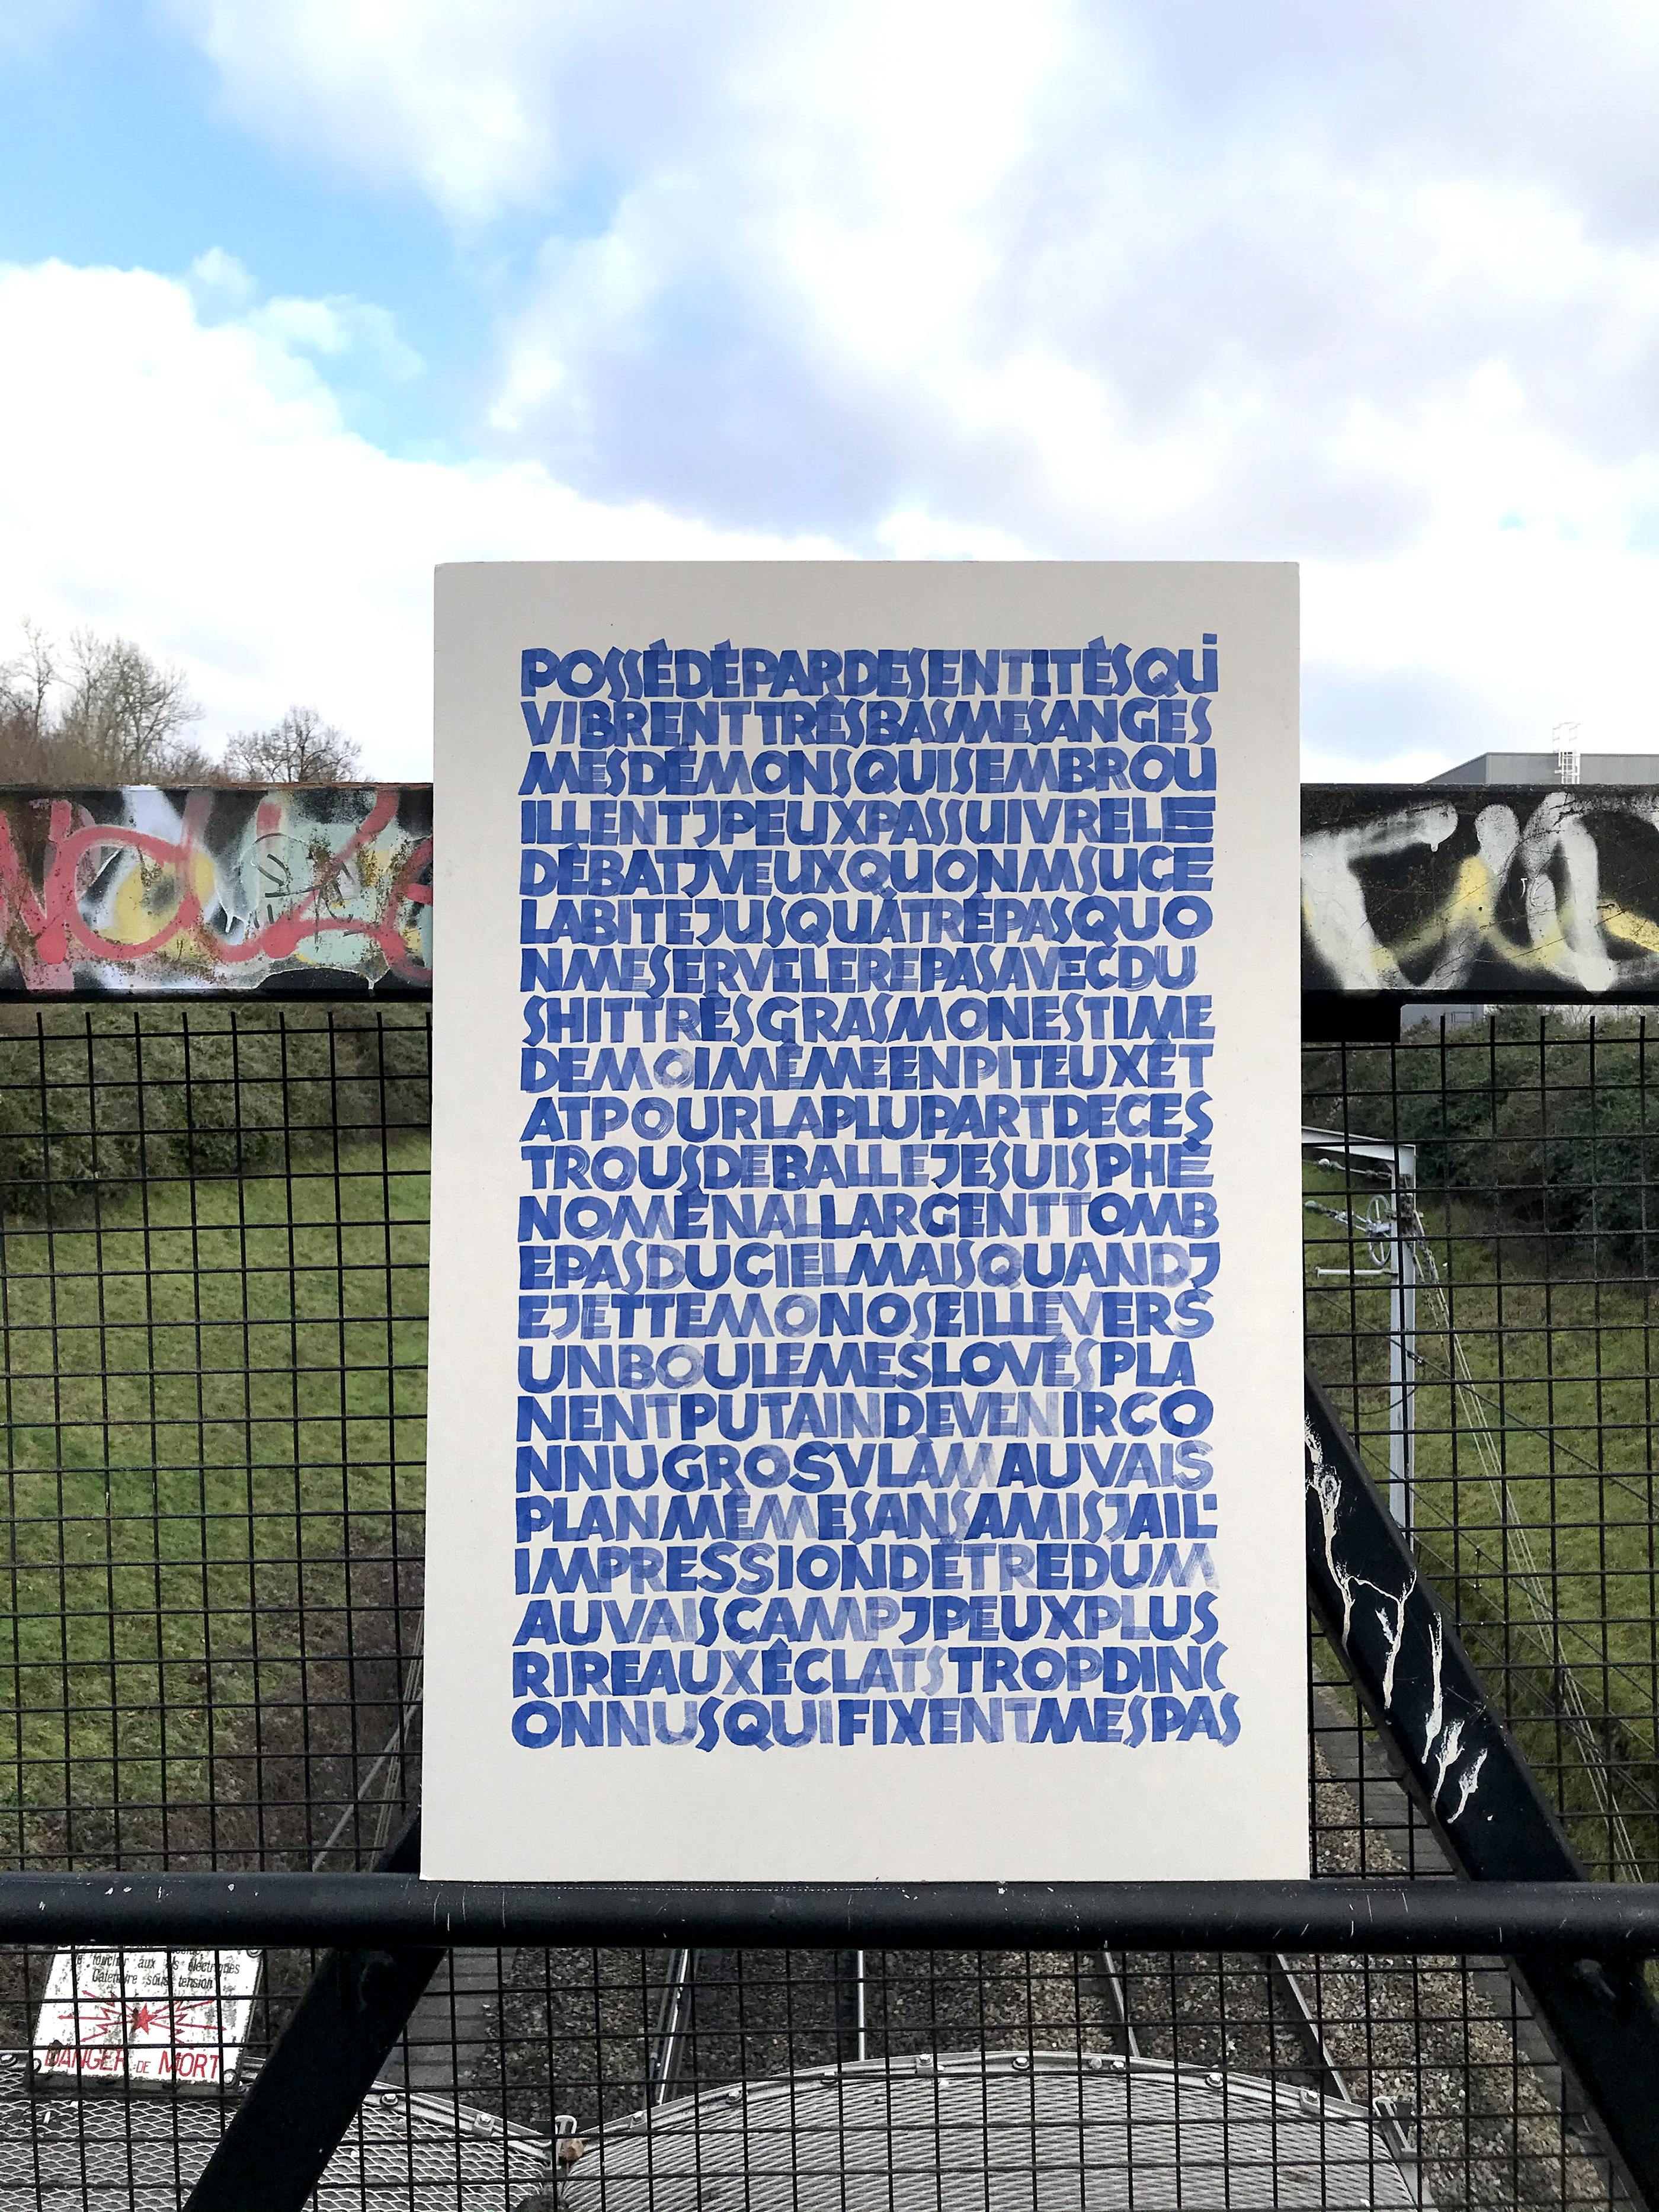 POSSÉDÉPARDESENTITÉSQUi
VIBRENTTRÈSBASMESANGES
MESDÉMONSQUISEMBROU
ILLENTJPEUXPASSUIVRELE
DÉBATJVEUXQUONMSUCE
LABITEJUSQUÀTRÉPASQUO
NMESERVELEREPASAVECDU
SHITTRÈSGRASMONESTIME
DEMOIMÊMEENPITEUXÉT
ATPOURLAPLUPARTDECES
TROUSDEBALLEJESUISPHÉ
NOMÉNALLARGENTTOMB
EPASDUCIELMAISQUANDJ
EJETTEMONOSEILLEVERS
UNBOULEMESLOVÉSPLA
NENTPUTAINDEVENIRCO
NNUGROSVLÀMAUVAIS
PLANMÊMESANSAMISJAIL'
IMPRESSIONDÊTREDUM
AUVAISCAMPJPEUXPLUS
RIREAUXÉCLATSTROPDINC
ONNUSQUIFIXENTMESPAS
toucher aux fils électriques
Caténaire sous tension
DANGER DE MORT